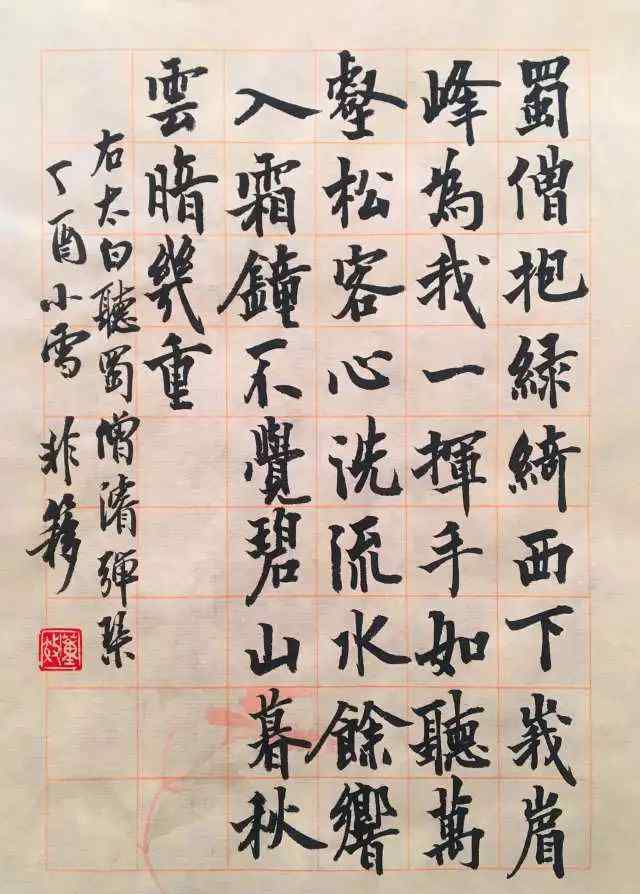 蜀僧抱緑綺西下峩嵋
峰為我一揮手如聽萬
壑松客心洗流水餘響
入霜鐘不覺碧山暮秋
雲暗幾重
右太白聽蜀僧濬彈琴
丁酉小雪 非